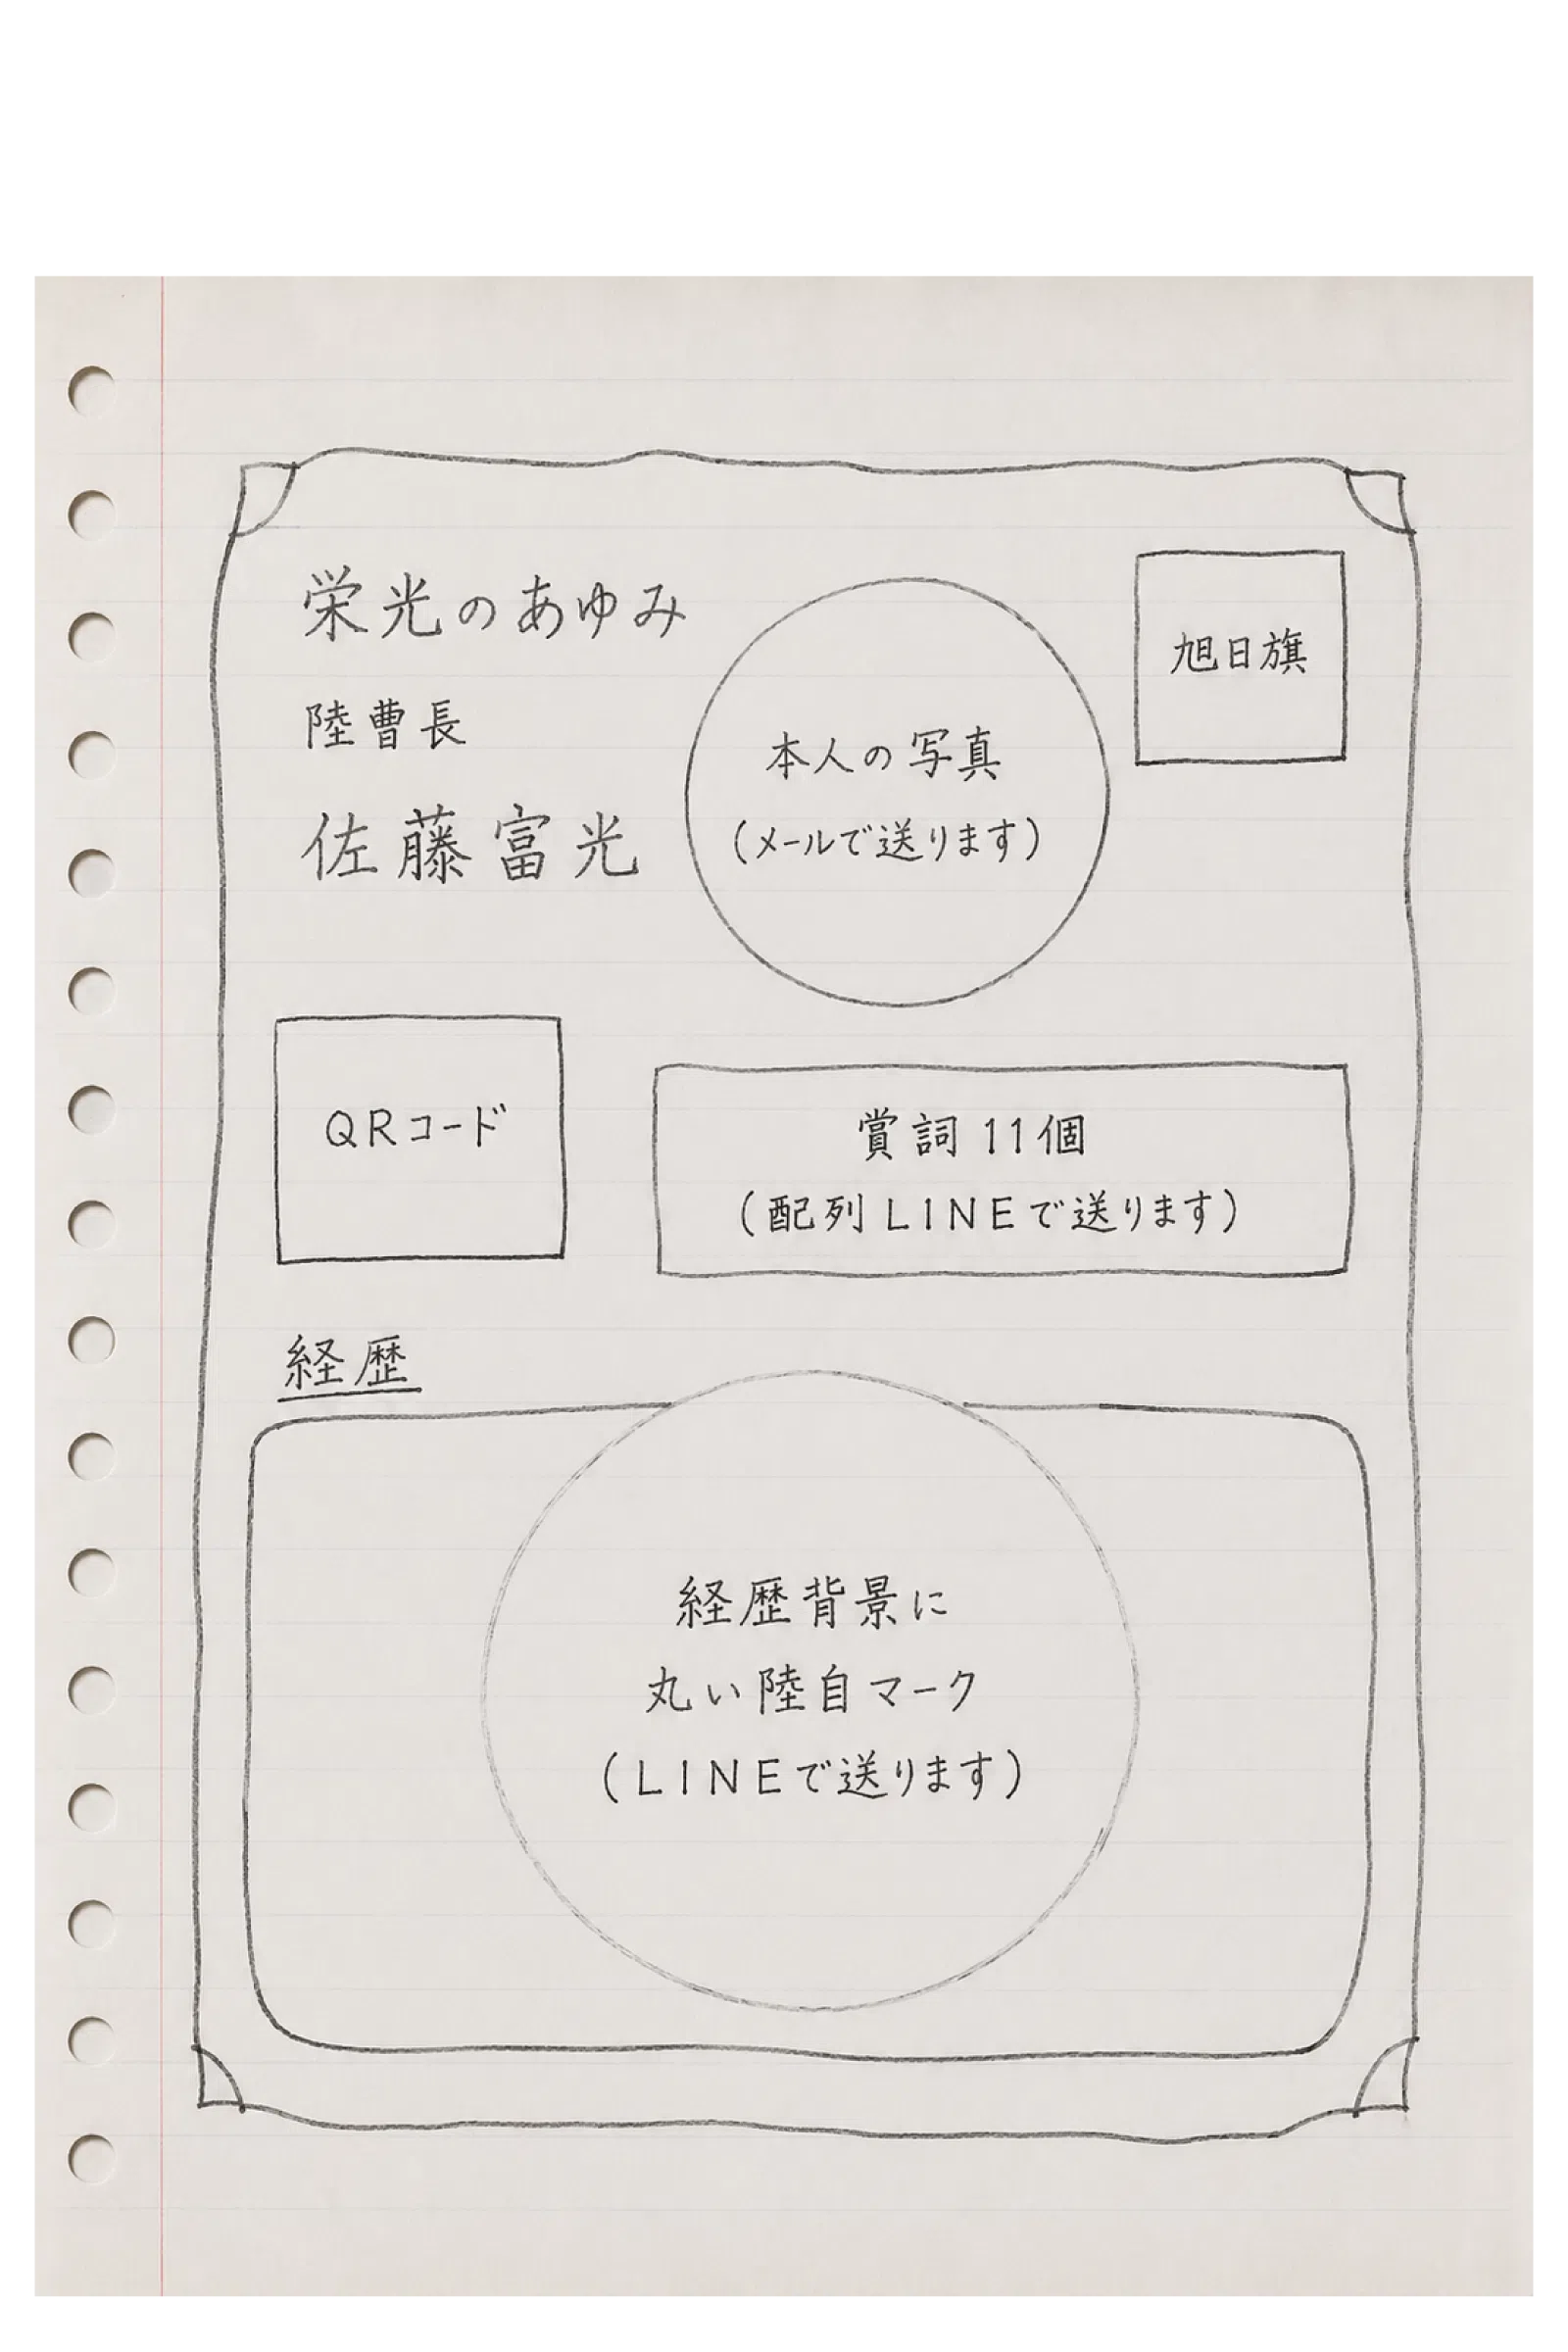 栄光のあゆみ
陸曹長
佐藤富光
本人の写真
(メールで送ります)
旭日旗
QRコード
賞詞11個
(配列LINEで送ります)
経歴
経歴背景に
丸い陸自マーク
(LINEで送ります)